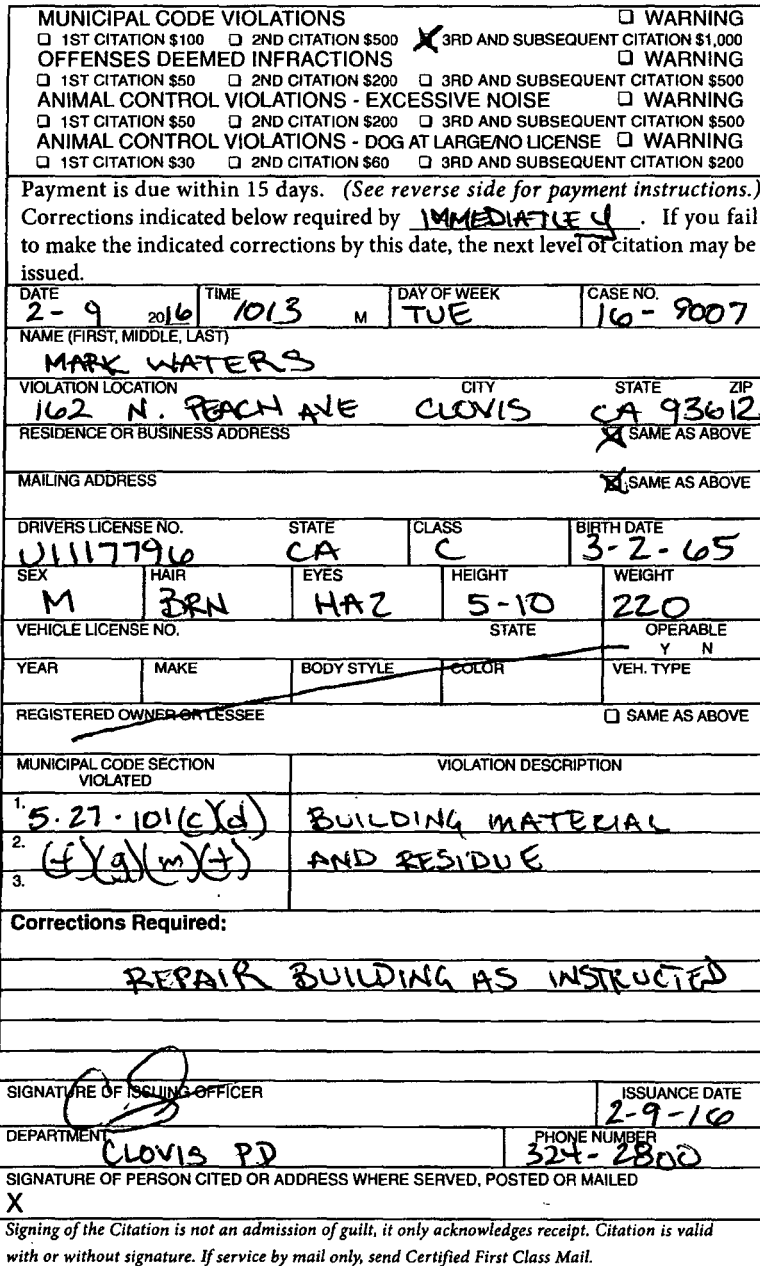 MUNICIPAL CODE VIOLATIONS ☐ WARNING
☐ 1ST CITATION $100 ☐ 2ND CITATION $500 ☒ 3RD AND SUBSEQUENT CITATION $1,000
OFFENSES DEEMED INFRACTIONS ☐ WARNING
☐ 1ST CITATION $50 ☐ 2ND CITATION $200 ☐ 3RD AND SUBSEQUENT CITATION $500
ANIMAL CONTROL VIOLATIONS - EXCESSIVE NOISE ☐ WARNING
☐ 1ST CITATION $50 ☐ 2ND CITATION $200 ☐ 3RD AND SUBSEQUENT CITATION $500
ANIMAL CONTROL VIOLATIONS - DOG AT LARGE/NO LICENSE ☐ WARNING
☐ 1ST CITATION $30 ☐ 2ND CITATION $60 ☐ 3RD AND SUBSEQUENT CITATION $200
Payment is due within 15 days. (See reverse side for payment instructions.)
Corrections indicated below required by IMMEDIATLEY. If you fail
to make the indicated corrections by this date, the next level of citation may be
issued.
DATE TIME DAY OF WEEK CASE NO.
2-9 2016 1013 M TUE 16-9007
NAME (FIRST, MIDDLE, LAST)
MARK WATERS
VIOLATION LOCATION CITY STATE ZIP
162 N. PEACH AVE CLOVIS CA 93612
RESIDENCE OR BUSINESS ADDRESS ☒ SAME AS ABOVE
MAILING ADDRESS ☒ SAME AS ABOVE
DRIVERS LICENSE NO. STATE CLASS BIRTH DATE
U1117796 CA C 3-2-65
SEX HAIR EYES HEIGHT WEIGHT
M BRN HAZ 5-10 220
VEHICLE LICENSE NO. STATE OPERABLE
Y N
YEAR MAKE BODY STYLE COLOR VEH. TYPE
REGISTERED OWNER OR LESSEE ☐ SAME AS ABOVE
MUNICIPAL CODE SECTION VIOLATION DESCRIPTION
VIOLATED
1. 5.27.101(c)(d) BUILDING MATERIAL
2. (f)(g)(m)(t) AND RESIDUE
3.
Corrections Required:
REPAIR BUILDING AS INSTRUCTED
SIGNATURE OF ISSUING OFFICER ISSUANCE DATE
2-9-16
DEPARTMENT PHONE NUMBER
CLOVIS PD 324-2800
SIGNATURE OF PERSON CITED OR ADDRESS WHERE SERVED, POSTED OR MAILED
X
Signing of the Citation is not an admission of guilt, it only acknowledges receipt. Citation is valid
with or without signature. If service by mail only, send Certified First Class Mail.